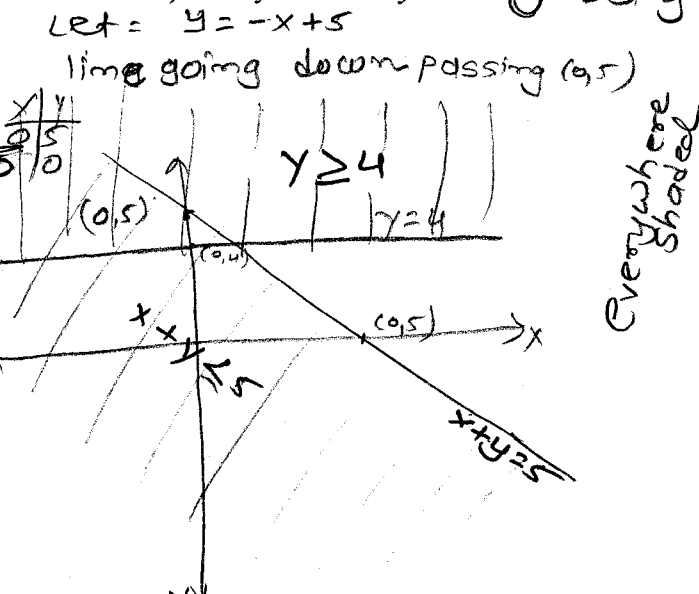 Let = y = -x+5
line going down passing (0,5)
x y
0 5
5 0
y ≥ 4
(0,5)
y=4
(0,4)
(0,5)
x
x+y ≤ 5
x+y=5
Everywhere
shaded